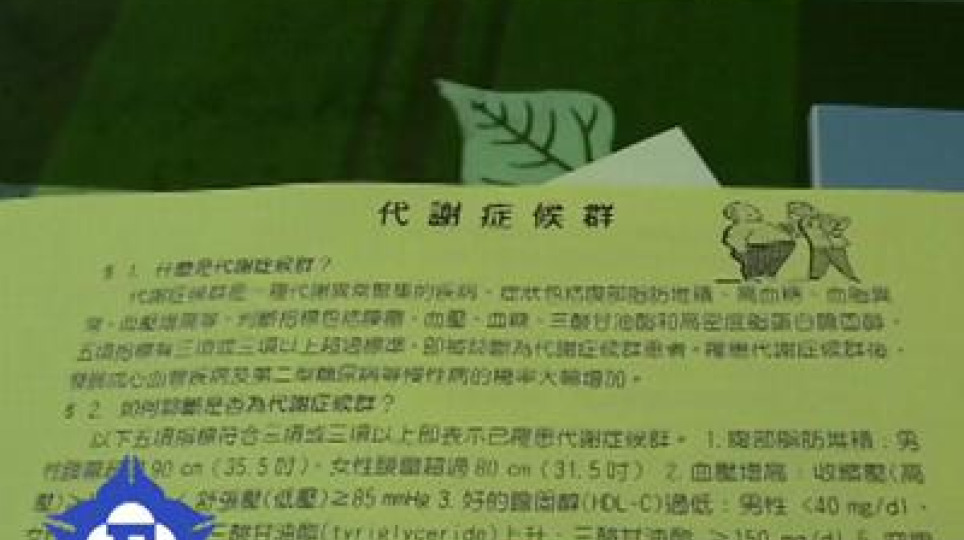 代謝症候群
§ 1. 什麼是代謝症候群？
代謝症候群是一種代謝異常聚集的疾病，症狀包括腹部脂肪堆積、高血糖、血脂異
常、血壓增高等，判斷指標包括腰圍、血壓、血糖、三酸甘油酯和高密度脂蛋白膽固醇，
五項指標有三項或三項以上超過標準，即被診斷為代謝症候群患者。罹患代謝症候群後，
發展成心血管疾病及第二型糖尿病等慢性病的機率大幅增加。
§ 2. 如何診斷是否為代謝症候群？
以下五項指標符合三項或三項以上即表示已罹患代謝症候群。 1. 腹部脂肪堆積：男
性腰圍 90 cm (35.5吋)，女性腰圍超過 80 cm (31.5吋) 2. 血壓增高：收縮壓(高
壓) 舒張壓(低壓) ≥85 mmHg 3. 好的膽固醇(HDL-C)過低：男性 <40 mg/dl、
三酸甘油酯(tyriglyceride)上升：三酸甘油酯 ≥150 mg/dl 5.